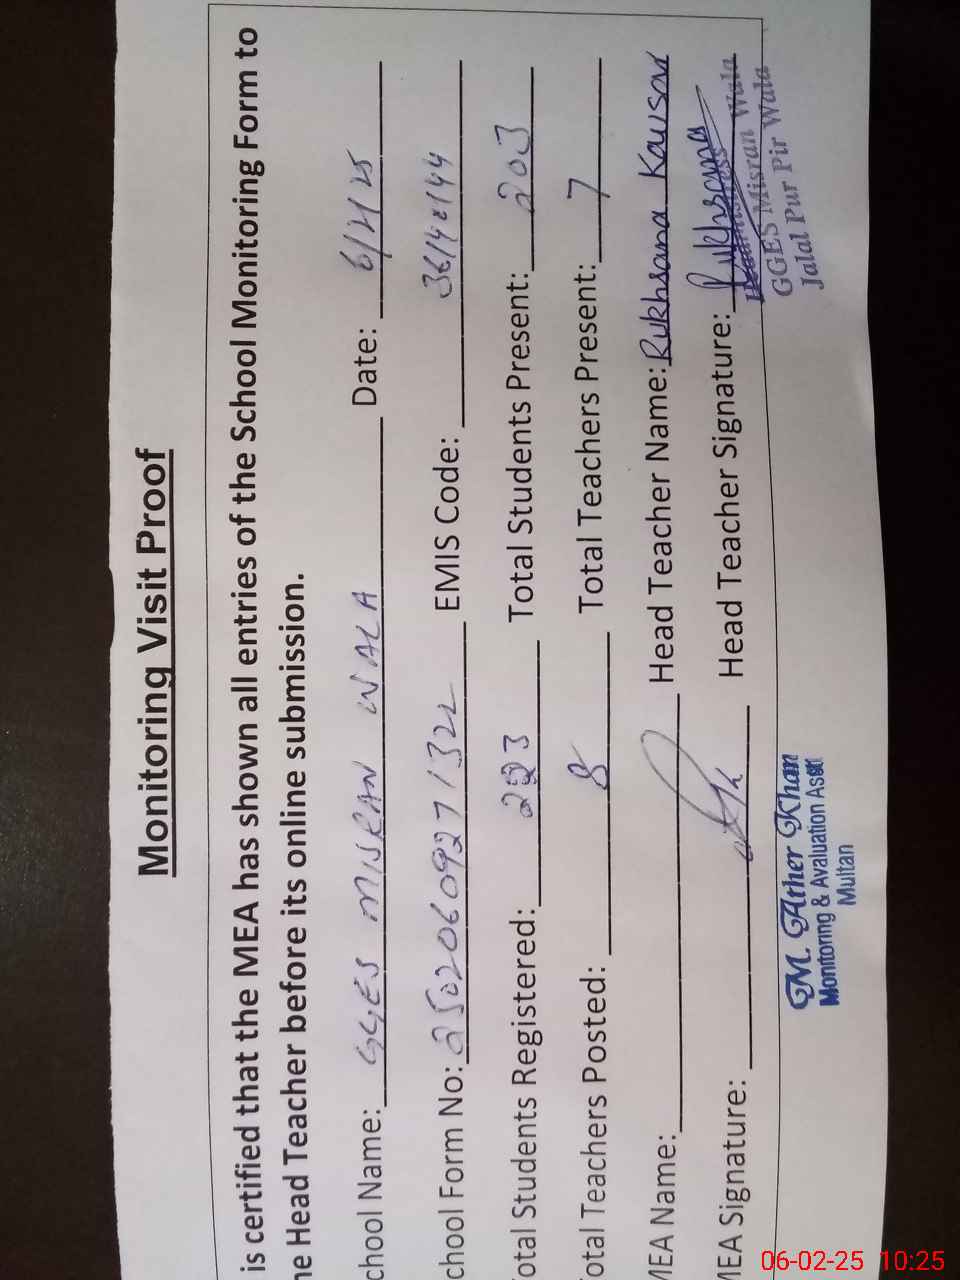 Monitoring Visit Proof
is certified that the MEA has shown all entries of the School Monitoring Form to
he Head Teacher before its online submission.
chool Name: GGES MISRAN WALA Date: 6/2/25
chool Form No: 25020609271322 EMIS Code:
otal Students Registered: 223 Total Students Present: 203
otal Teachers Posted: 8 Total Teachers Present: 7
MEA Name: Head Teacher Name: Rukhsana Kousar
MEA Signature: Head Teacher Signature: Rukhsana
M. Ather Khan
Monitoring & Evaluation Asstt
Multan
Headmistress
GGES Misran Wala
Jalal Pur Pir Wala
06-02-25 10:25